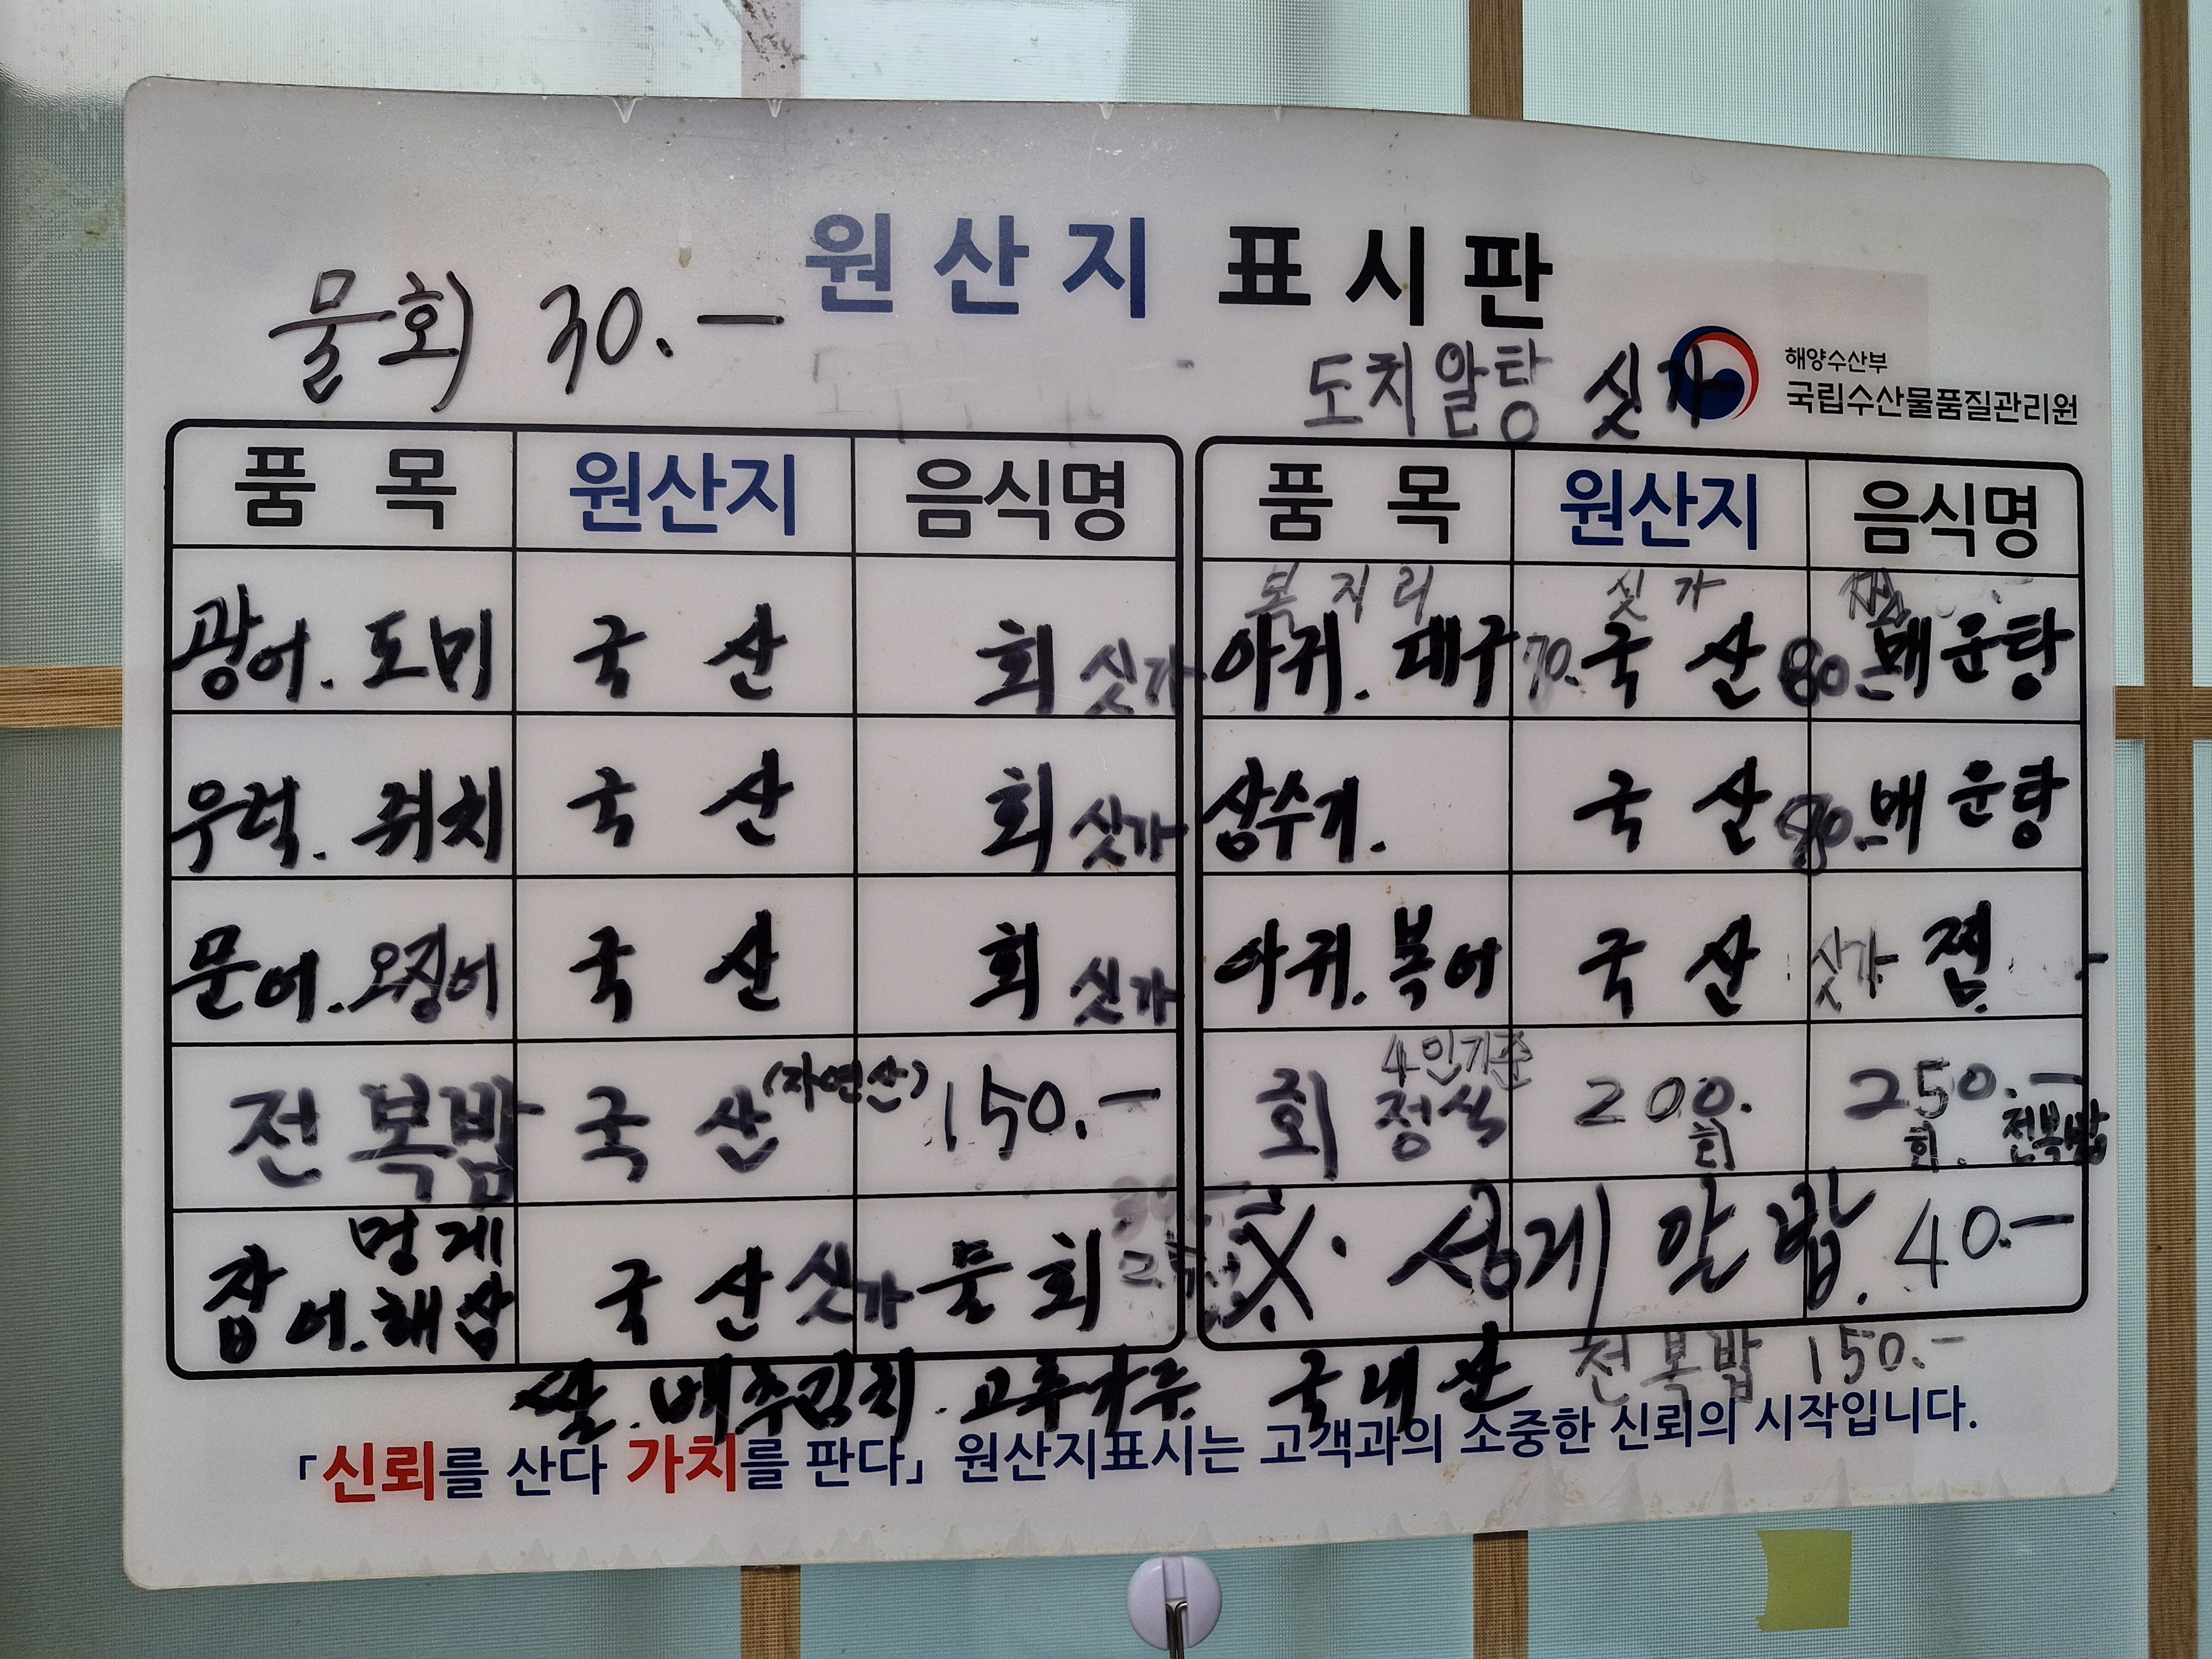 원산지 표시판
물회 30.-
도치알탕 싯가
해양수산부
국립수산물품질관리원
품목 원산지 음식명
광어. 도미 국산 회 싯가
우럭. 쥐치 국산 회 싯가
문어. 오징어 국산 회 싯가
전복밥 국산 (자연산) 150.-
멍게
잡어. 해삼 국산 싯가 물회
품목 원산지 음식명
복지리 싯가
아귀. 대구 70. 국산 80.- 매운탕
삼수기. 국산 80.- 매운탕
아귀. 복어 국산 싯가 찜
4인기준
회정식 200. 250.-
회 회. 전복밥
성게알밥. 40.-
쌀. 배추김치. 고추가루. 국내산 전복밥 150.-
「신뢰를 산다 가치를 판다」 원산지표시는 고객과의 소중한 신뢰의 시작입니다.